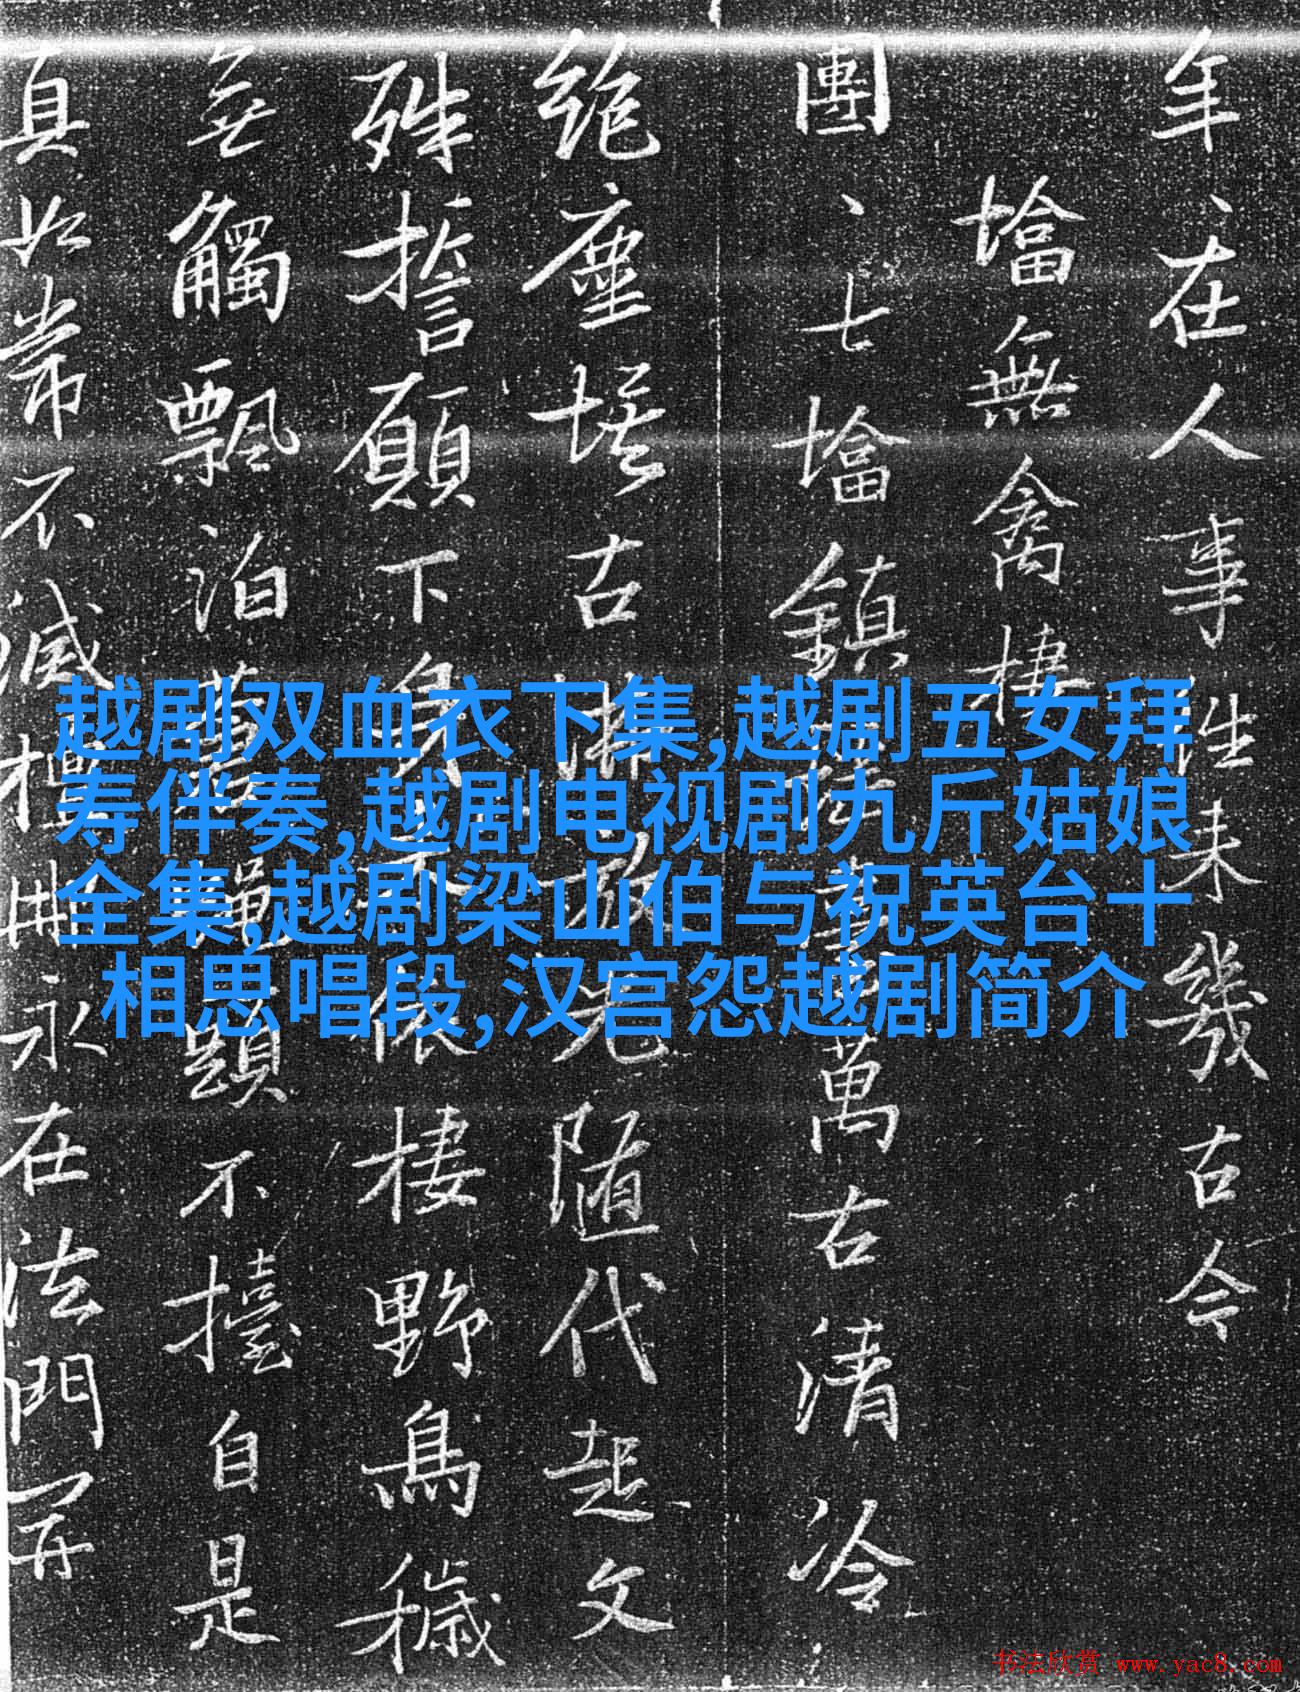 年、在人事
性未幾古今
墖無禽棲
團、七墖鎮
萬古清冷
絶塵埃古
随代起文
殊誓願下
棲野鳥穢
無觸飄泊
題不擡自是
真如常不滅
永在法門開
越剧双血衣下集,越剧五女拜
寿伴奏,越剧电视剧九斤姑娘
全集,越剧梁山伯与祝英台十
相思唱段,汉宫怨越剧简介
书法欣赏 www.yac8.com